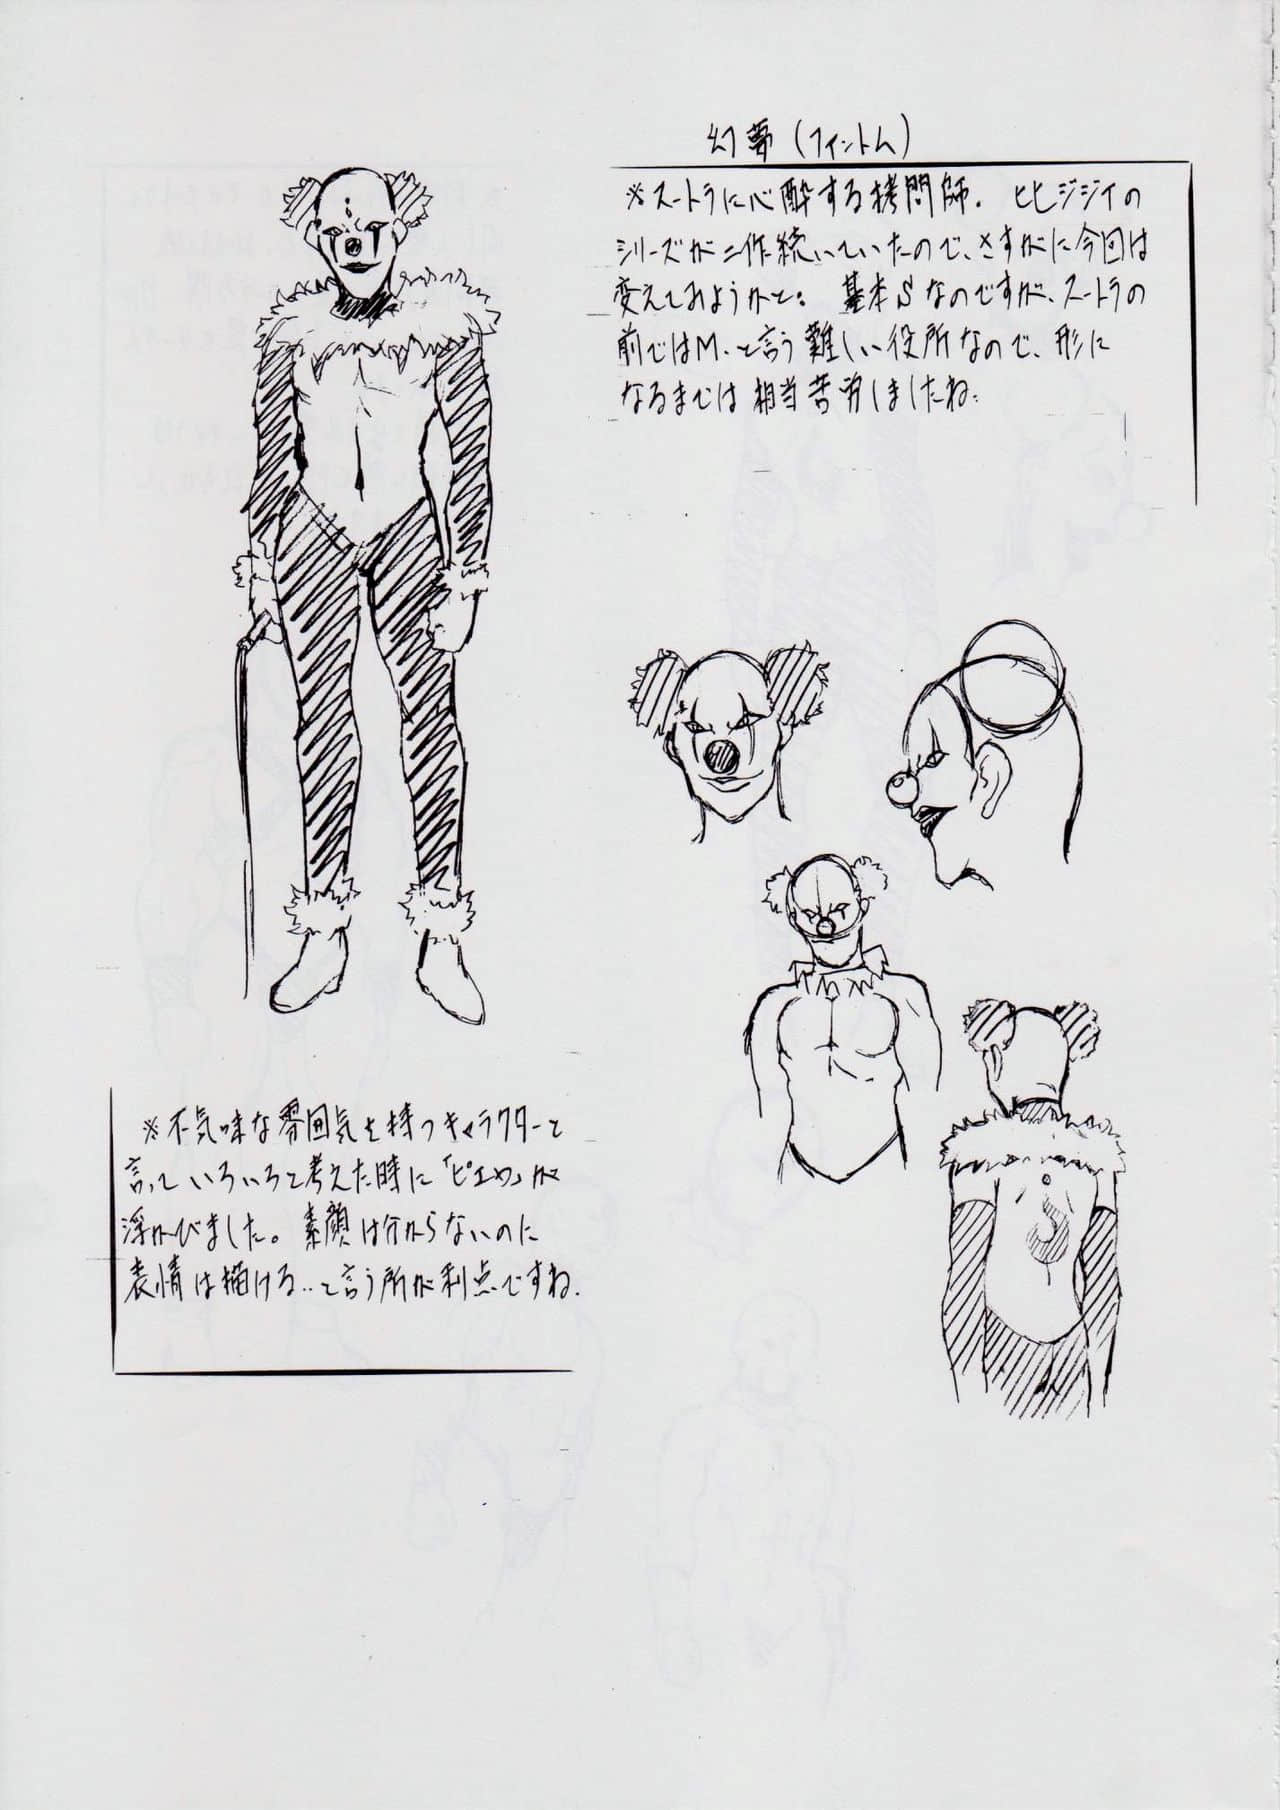 幻夢(フィントム)
※スートラに心酔する拷問師. ヒヒジジイの
シリーズが二作続いていたので、さすがに今回は
変えてみようかと。 基本Sなのですが、スートラの
前ではM、と言う難しい役所なので、形に
なるまでは相当苦労しましたね.
※不気味な雰囲気を持つキャラクターと
言っていろいろと考えた時に「ピエロ」が
浮かびました。素顔は分からないのに
表情は描ける..と言う所が利点ですね.